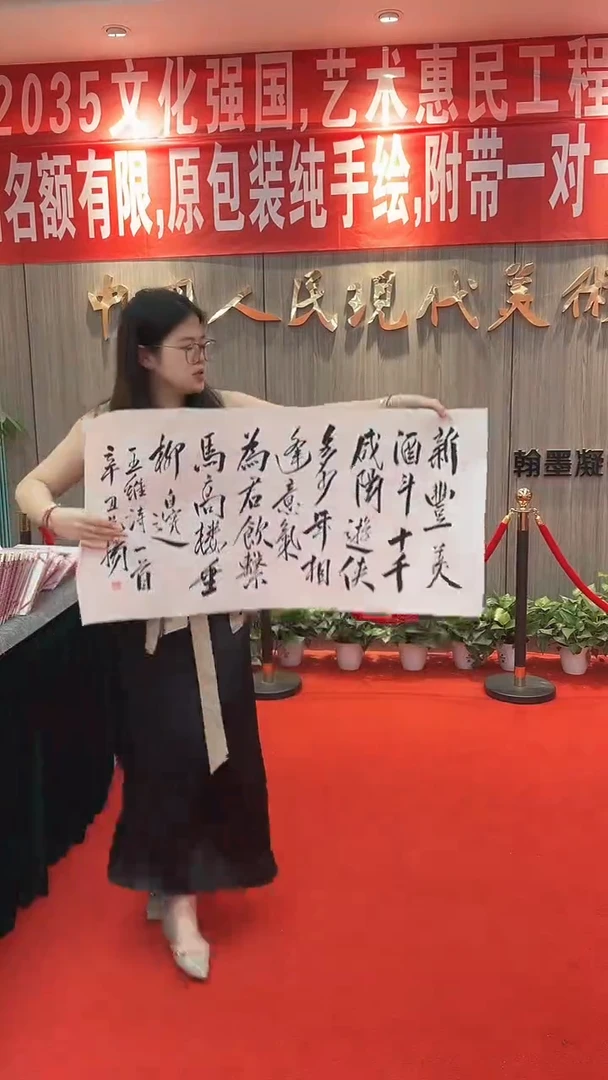 2035文化强国,艺术惠民工程
名额有限,原包装纯手绘,附带一对一
中国人民現代美術
翰墨凝
新豐美
酒斗十千
咸陽遊俠
多少年相
逢意氣
為君飲繫
馬高樓垂
柳邊
王維詩一首
辛丑